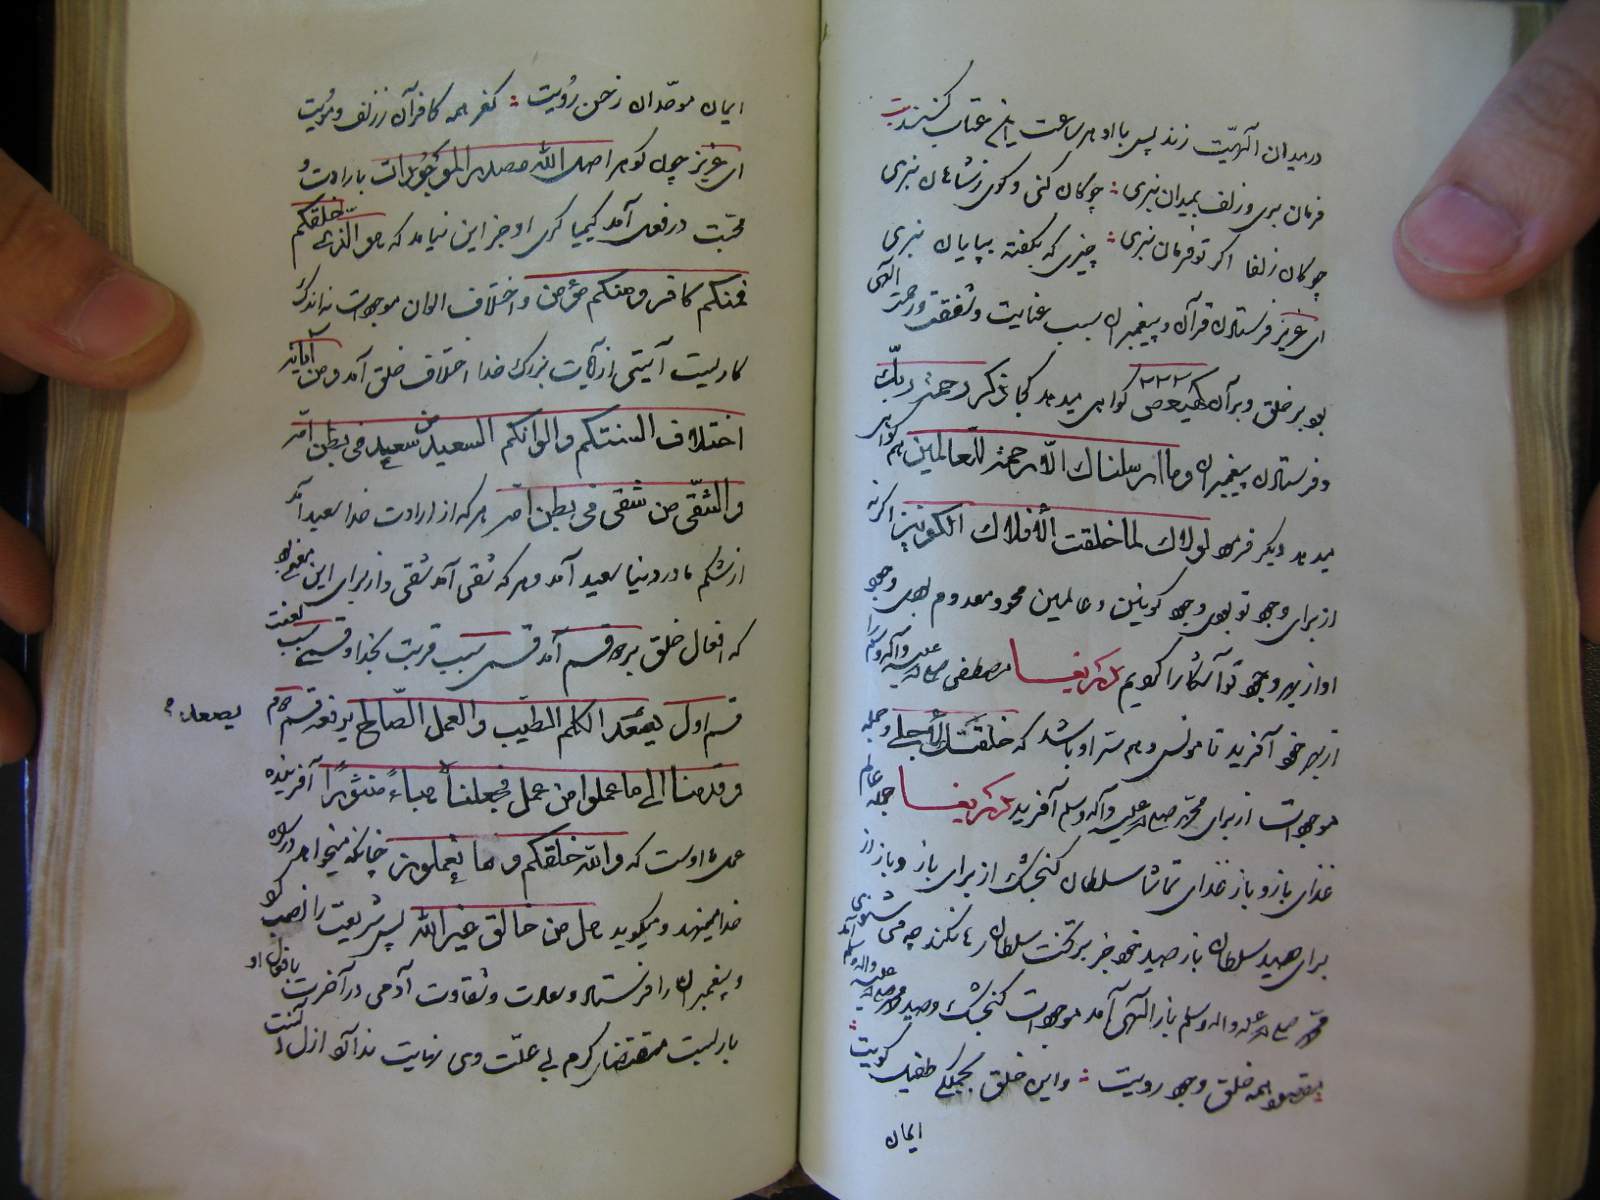 در میدان الهیّت زند پس با او هر ساعت این عتاب کنند بیت
فرمان بری و زلف بمیدان نبری ؛ چوکان کنی و کوی ز شاهان نبری
چوکان زلفا اکر تو فرمان نبری ؛ چیزی که بکفته بپایان نبری
ای عزیز فرستادن قرآن و پیغمبران سبب عنایت و شفقت و رحمت الهی
بود بر خلق و بر آن کهیعص کواهی میدهد کجا ذکر رحمة ربّک
و فرستادن پیغمبران و ما ارسلناک الّا رحمة للعالمین هم کواهی
میدهد دیکر فرمود لولاک لما خلقت الافلاک الکونین اکر نه
از برای وجود تو بودی وجود کونین و عالمین محو و معدوم بودی وجود
او از بهر وجود تو آشکارا کردیم مصطفی صلی الله علیه وآله وسلم را
از بهر خود آفرید تا مونس و هم سر او باشد که خلقتک لأجلی و جمله
موجودات از برای محمّد صلی الله علیه وآله وسلم آفرید جمله عالم
غذای باز و باز غذای تماشا سلطان کنجشک از برای باز و باز از
برای صید سلطان باز صید خود جز بر کتف سلطان نکند چه می شنوی
محمّد صلی الله علیه واله وسلم باز الهی آمد موجودات کنجشک و صید محمد صلی الله علیه واله وسلم آمد
مقصود همه خلق وجود رویت ؛ و این خلق بجملکی طفیل کویت ؛
ایمان
ایمان موحّدان ز حسن رُویت ؛ کفر همه کافرآن ز زلف و مُویت
ای عزیز چون کوهر اصل الله مصدر الموجودات بارادت و
محبّت در فعل آمد کیمیا کری او جز این نیامد که هو الّذی خلقکم
فمنکم کافر و منکم مؤمن و اختلاف الوان موجودات نه اندک
کاریست آیتی از آیات بزرک خدا اختلاف خلق آمد و من آیاته
اختلاف السنتکم والوانکم السعید من سعید فی بطن امّه
والشّقی من شقی فی بطن امّه هر که از ارادت خدا سعید آمد
از شکم مادر در دنیا سعید آمد و هر که شقی آمد شقی و از برای این معنی بود
که افعال خلق بر دو قسم آمد قسمی سبب قربت بخدا و قسمی سبب لعنت
قسم اول یصعد الکلم الطیّب والعمل الصّالح یرفعه قسم دوم
یصعد
و قدمنا الی ما عملوا من عمل فجعلناه هباءً منثورًا آفریننده
عمل اوست که والله خلقکم و ما تعملون چنانکه میخواهد در راه
خدا مینهد و میکوید هل من خالق غیر الله پس شریعت را نصب کرد
و پیغمبران را فرستاد و سعادت و شقاوت آدمی در آخرت بافعال او
باز بست مقتضای کرم بی علّت وی نهایت ندارد ازل